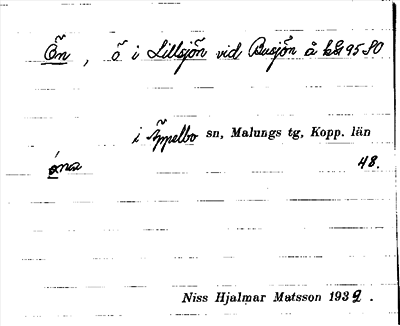 Ön, ö i Lillsjön vid Busjön å bl 95 SO
i Äppelbo sn, Malungs tg, Kopp. län
ó̱na 48.
Niss Hjalmar Matsson 1932.